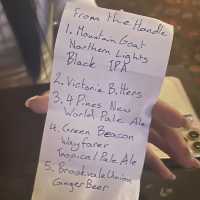 From the Handle
1. Mountain Goat
Northern Lights
Black IPA
2. Victoria Bitters
3. 4 Pines New
World Pale Ale
4. Green Beacon
Wayfarer
Tropical Pale Ale
5. Brookvale Union
Ginger Beer